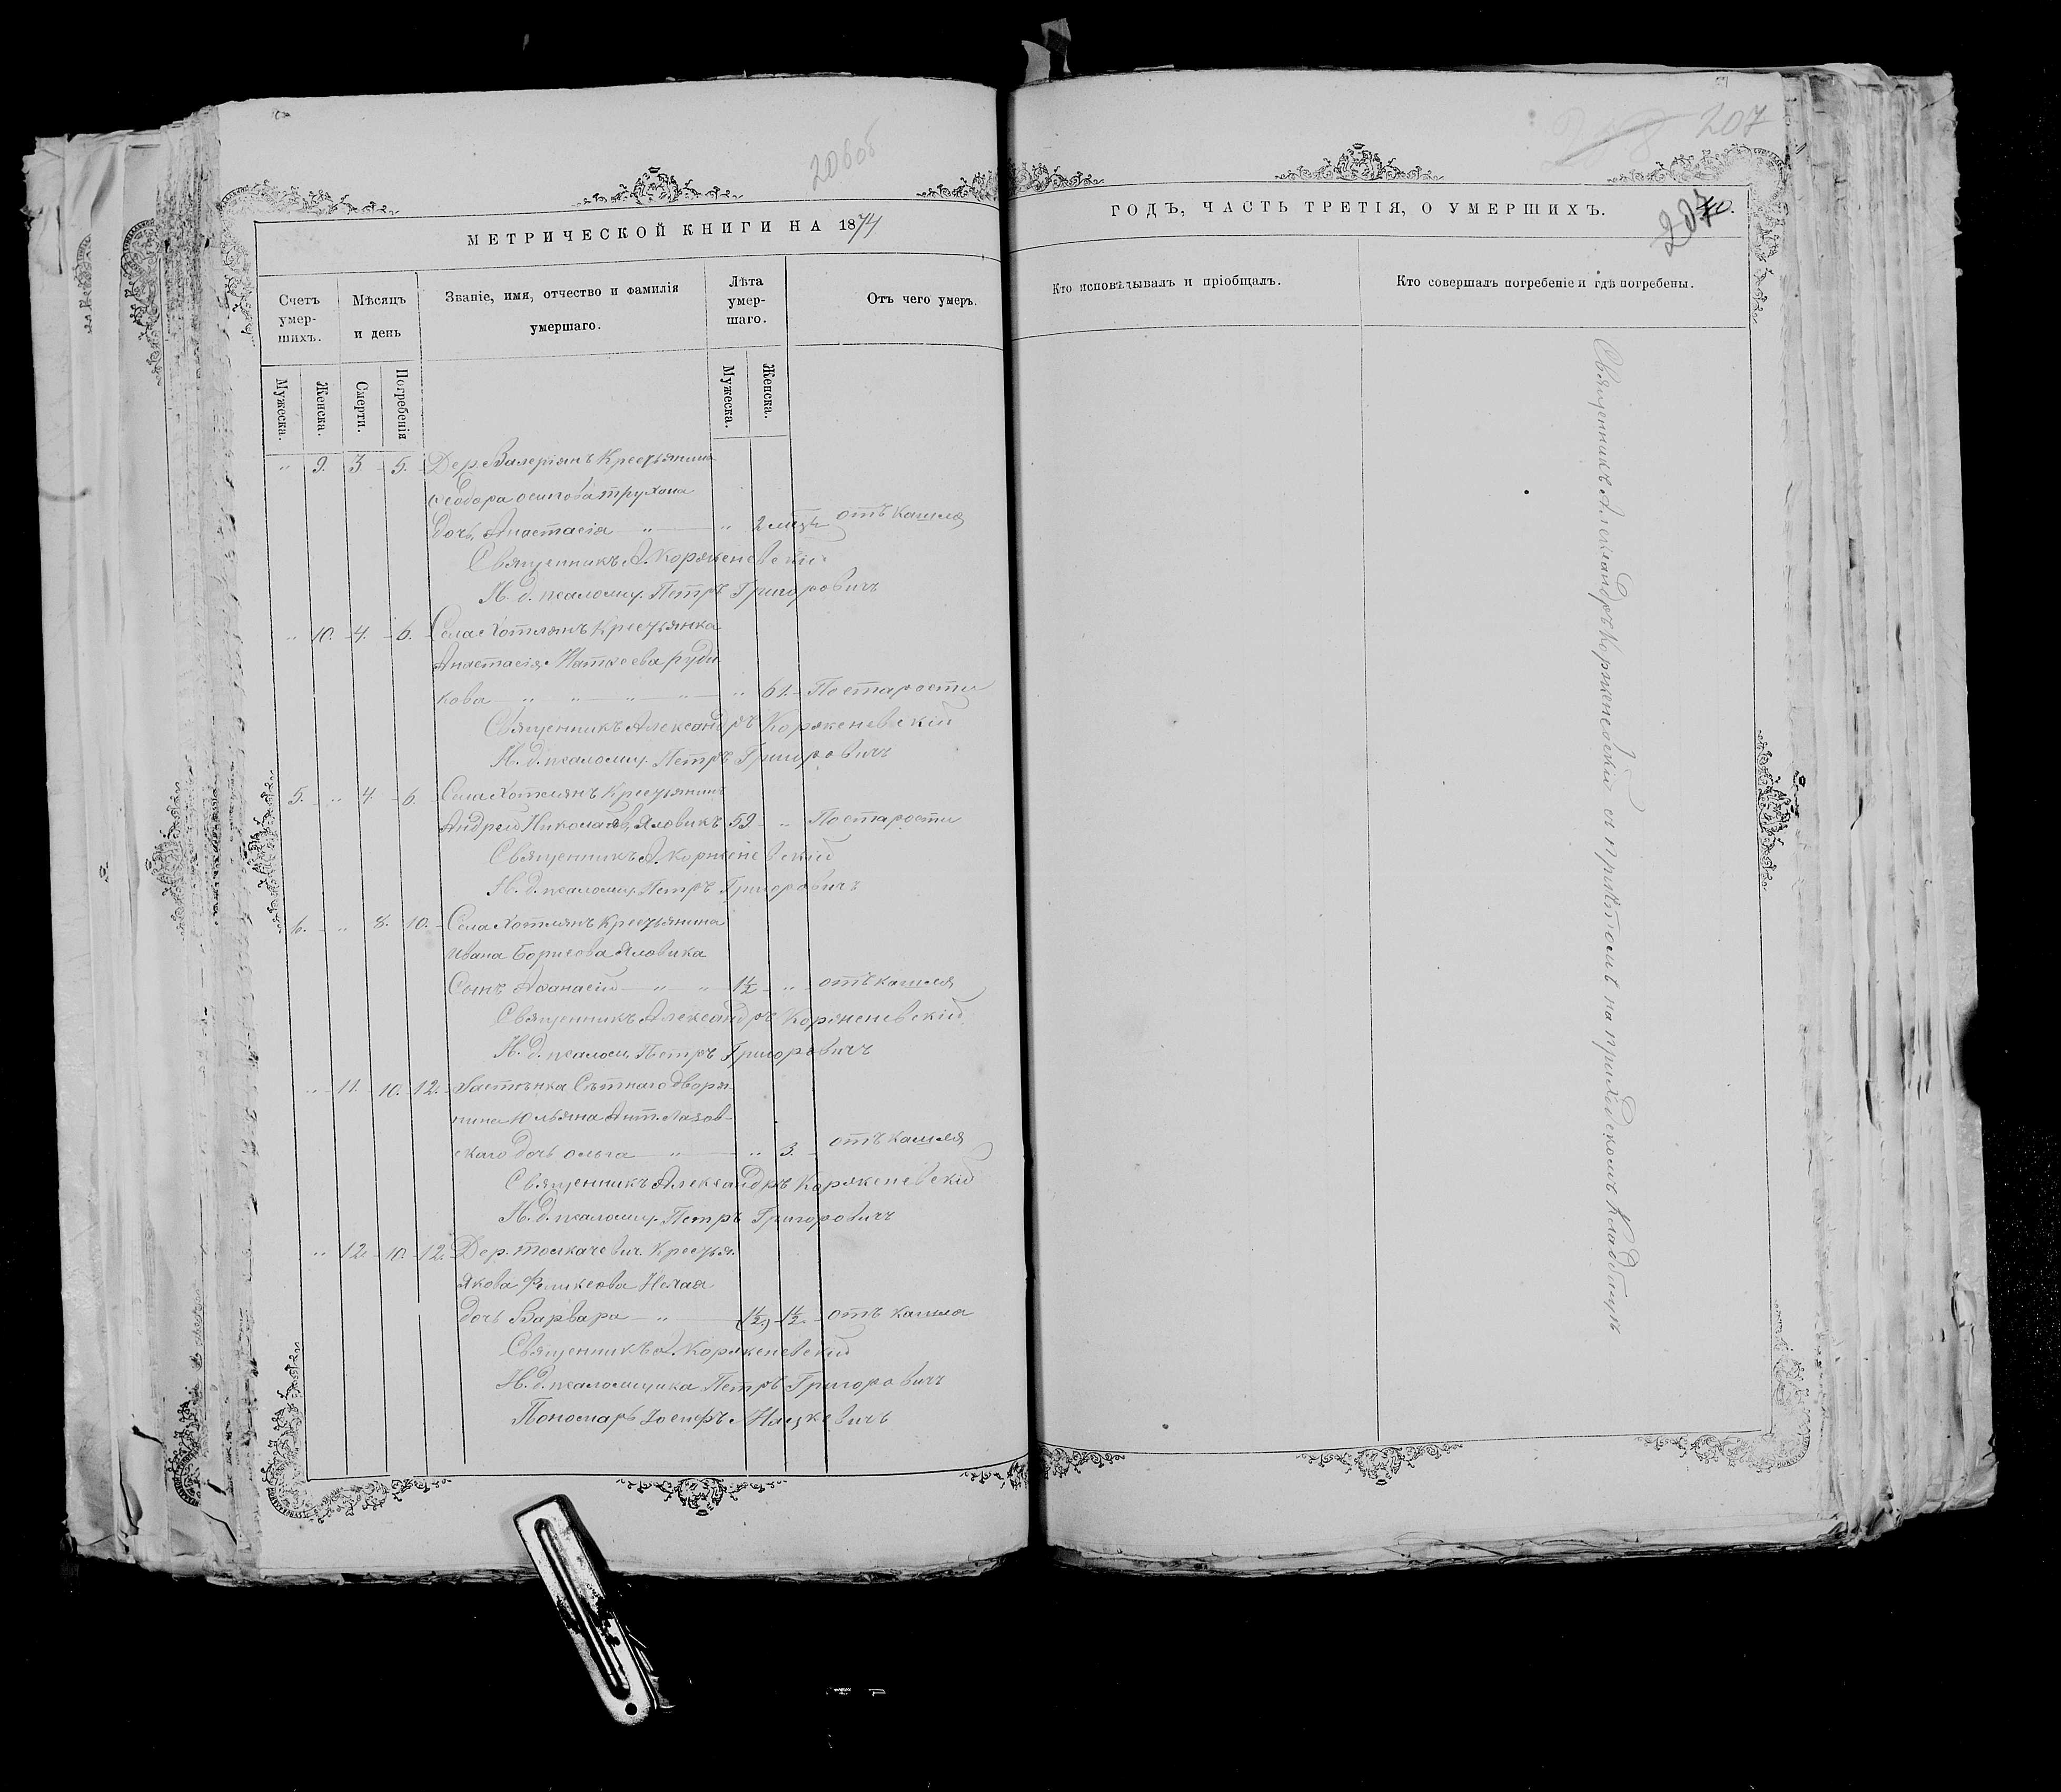 206об
МЕТРИЧЕСКОЙ КНИГИ НА 1874
Счетъ умершихъ.
Мѣсяцъ и день
Званіе, имя, отчество и фамилія умершаго.
Лѣта умершаго.
Отъ чего умеръ.
Мужеска.
Женска.
Смерти.
Погребенія
Мужеска.
Женска.
" 9. 3. 5. Дер. Валеріянъ Крестьянина
Ѳеодора осипова трухана
дочь Анастасія " " 2 мѣся отъ кашля
Священникъ А. Корженевскій
И. д. псаломщ. Петръ Григоровичъ
" 10. 4. 6. Села Хотлянъ Крестьянка
Анастасія Маткеева руди
кова " " " " " 61. По старости
Священникъ Александръ Корженевскій
И. д. псаломщ. Петръ Григоровичъ
5. " 4. 6. Села Хотлянъ Крестьянинъ
Андрей Николаевъ Яловикъ 59 " По старости
Священникъ А. Корженевскій
И. д. псаломщ. Петръ Григоровичъ
6. " 8. 10. Села Хотлянъ Крестьянина
Ивана Борисова Яловика
Сынъ Аѳанасій " " 1½ " отъ кашля
Священникъ Александръ Корженевскій
И. д. псалом. Петръ Григоровичъ
" 11. 10. 12. Застѣнка Сѣтнаго дворя-
нина Юльяна Ант. Лазов-
скаго дочь ольга " " 3. отъ кашля
Священникъ Александръ Корженевскій
И. д. псаломщ. Петръ Григоровичъ
" 12. 10. 12. Дер. толкачевич. Крестья.
Якова Феликсова
дочь Варвара " (1½) 1½. отъ кашля
Священникъ А. Корженевскій
И. д. псаломщика Петръ Григоровичъ
Пономарь Іосифъ Мицкевичъ
207
ГОДЪ, ЧАСТЬ ТРЕТІЯ, О УМЕРШИХЪ.
207
Кто исповѣдывалъ и пріобщалъ.
Кто совершалъ погребеніе и гдѣ погребены.
Священникъ Александръ Корженевскій съ причтомъ на приходскомъ Кладбищѣ